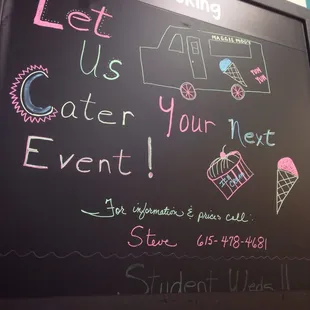 king
Let
Us
MAGGIE MOO'S
YUM
YUM
Cater Your Next
Event!
For information & prices call:
Steve 615-478-4681
Student Weds!!